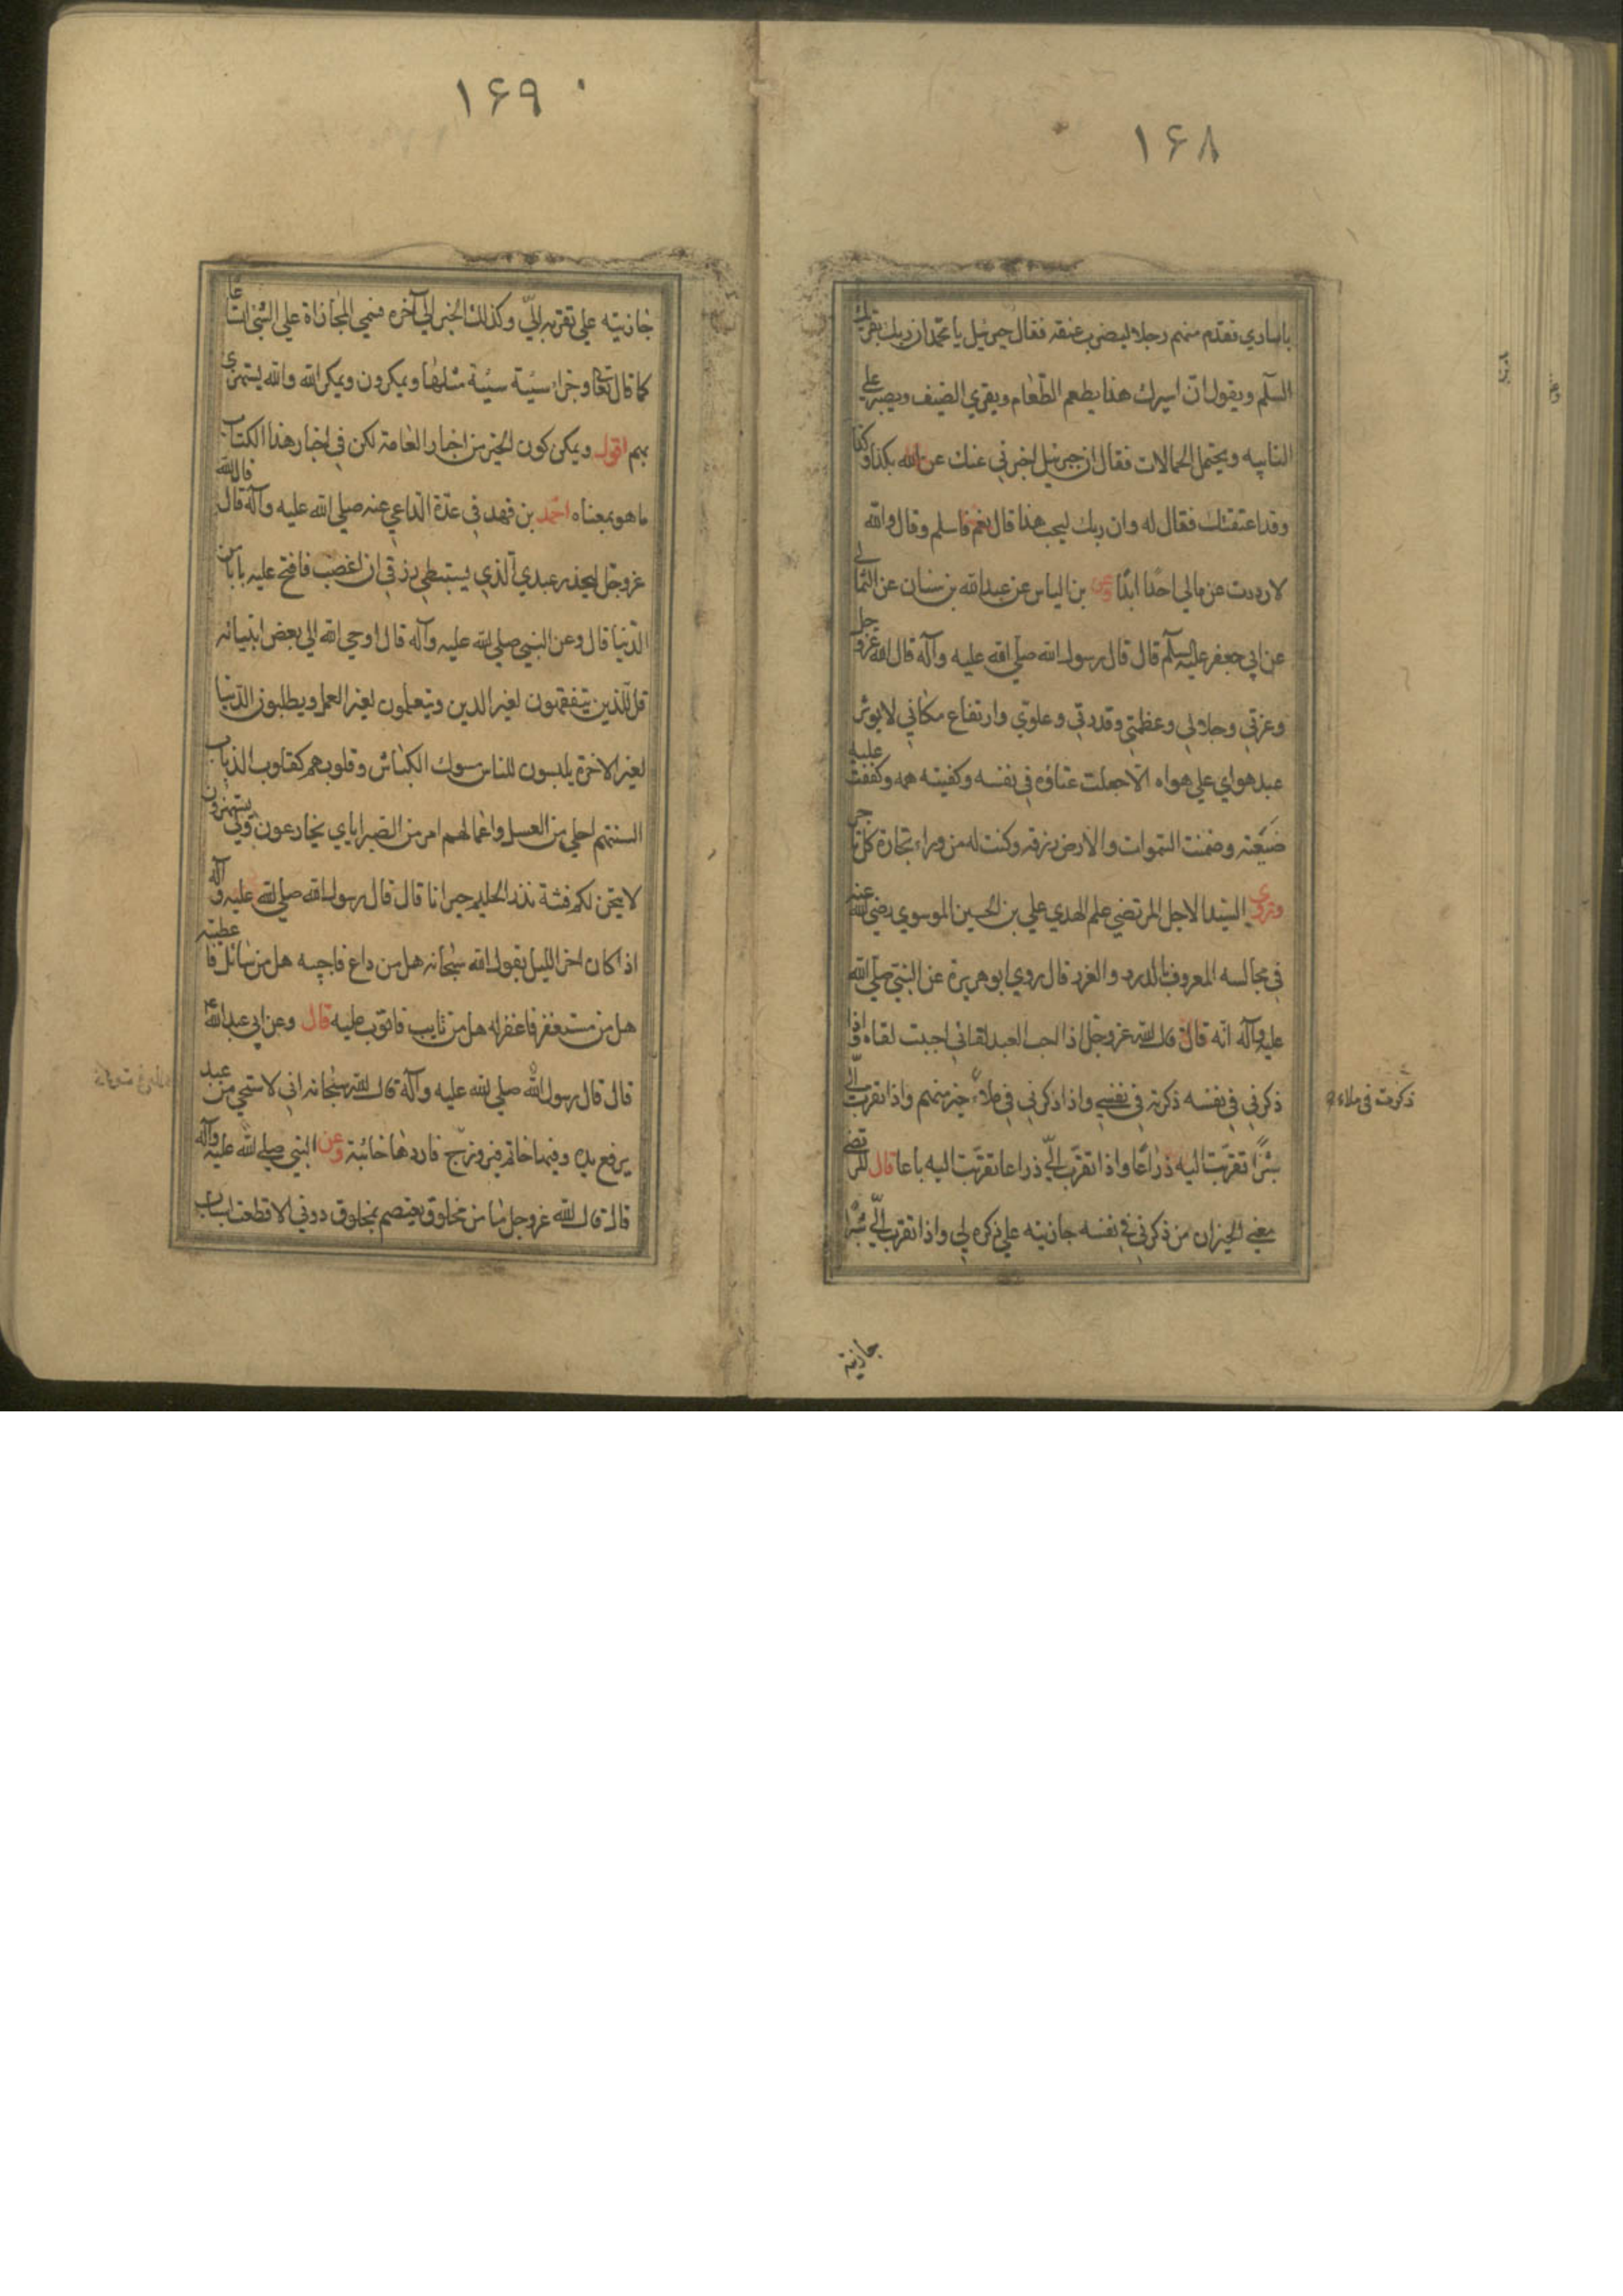 ۱۶۸
باساری فقدم منهم رجلا لیضرب عنقه فقال جبرئیل یا محمد ان ربك یقرئك
السلم ویقول انّ اسیرك هذا یطعم الطّعام ویقری الضیف ویصبر علی
النایبه ویحتمل الحمالات فقال ان جبرئیل اخبرنی عنك عن الله بكذا وكذا
وقد اعتقتك فقال له وان ربك لیحب هذا قال نعم فاسلم وقال والله
لارددت عن مالی احدًا ابدًا وعن بن الیاس عن عبدالله بن سنان عن الثمالی
عن ابی جعفر علیه السلم قال قال رسول الله صلی الله علیه وآله قال الله عزوجل
وعزتی وجلالی وعظمتی وقدرتی وعلوی وارتفاع مكانی لایوثر
عبد هوای علی هواه الّا جعلت غناؤه فی نفسه وكفیته همه وكففت علیه
ضیعته وضمنت السموات والارض رزقه وكنت له من وراء تجارة كل تاجر
وروی السیّد الاجل المرتضی علم الهدی علی بن الحسین الموسوی رضی الله عنه
فی مجالسه المعروف بالدرر والغرر قال روی ابو هریرة عن النبی صلی الله
علیه وآله انّه قال قال الله عزوجل اذا احب العبد لقائی احببت لقاه واذا
ذكرنی فی نفسه ذكرته فی نفسی واذا ذكرنی فی ملاء خیر منهم واذا تقرب الیّ
شبرًا تقرّبت الیه ذراعًا واذا تقرّب الیّ ذراعا تقرّبت الیه باعا قال المرتضی
معنی الخبر ان من ذكرنی فی نفسه جازیته علی ذكره لی واذا تقرب الیّ شبرًا
ذكرت فی ملاء
جازیته
۱۶۹
جازیته علی تقربه الیّ وكذلك الخبر الی آخره فسمی المجازاة علی الشئ
كما قال تعالی وجزاء سیّئة سیّئة مثلها ویمكرون ویمكر الله والله یستهزئ
بهم اقول ویمكن كون الخبر من اخبار العامة لكن فی اخبار هذا الكتاب
ما هو بمعناه احمد بن فهد فی عدّة الدّاعی عنه صلی الله علیه وآله قال قال الله
عزوجل لیحذر عبدی الّذی یستبطی رزقی ان اغضب فافتح علیه بابا من
الدّنیا قال وعن النبی صلی الله علیه وآله قال اوحی الله الی بعض انبیائه
قل للّذین یتفقهون لغیر الدین ویتعلمون لغیر العمل ویطلبون الدّنیا
لغیر الاخرة یلبسون للناس مسوك الكباش وقلوبهم كقلوب الذیاب
السنتهم احلی من العسل واعمالهم امر من الصبر ایای یخادعون وبی یستهزؤن
لاتیحن لكم فتنة تذر الحلیم حیرانا قال قال رسول الله صلی الله علیه وآله
اذا كان اخر اللیل یقول الله سبحانه هل من داع فاجیبه هل من سائل فاعطیته
هل من مستغفر فاغفر له هل من تایب فاتوب علیه قال وعن ابی عبدالله
قال قال رسول الله صلی الله علیه وآله قال الله سبحانه انی لاستحی من عبد
یرفع یده وفیها خاتم فیروزج فاردها خائبة وعن النبی صلی الله علیه وآله
قال قال الله عزوجل ما من مخلوق یعتصم بمخلوق دونی الا قطعت اسباب